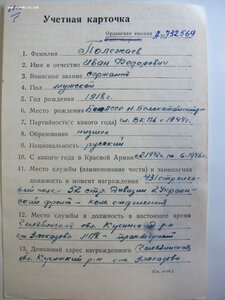 Учетная карточка
Орденская книжка
А-732569
1. Фамилия Полежаев
2. Имя и отчество Иван Федорович
3. Воинское звание Сержант
4. Пол мужской
5. Год рождения 1918 г.
6. Место рождения
7. Партийность (с какого года) чл. ВКПб с 1944 г.
8. Образование низшее
9. Национальность русский
10. С какого года в Красной Армии с 1942 по 6-1946 г.
11. Место службы (наименование части) и занимаемая
должность в момент награждения 431 стрелко-
вый полк 52 стр. дивизии 2 Украин-
ский фронт - ком. отделения
12. Место службы и должность в настоящее время
Челябинской обл. Кусинский р-н
13. Домашний адрес награжденного Челябинская
обл. Кусинский р-н